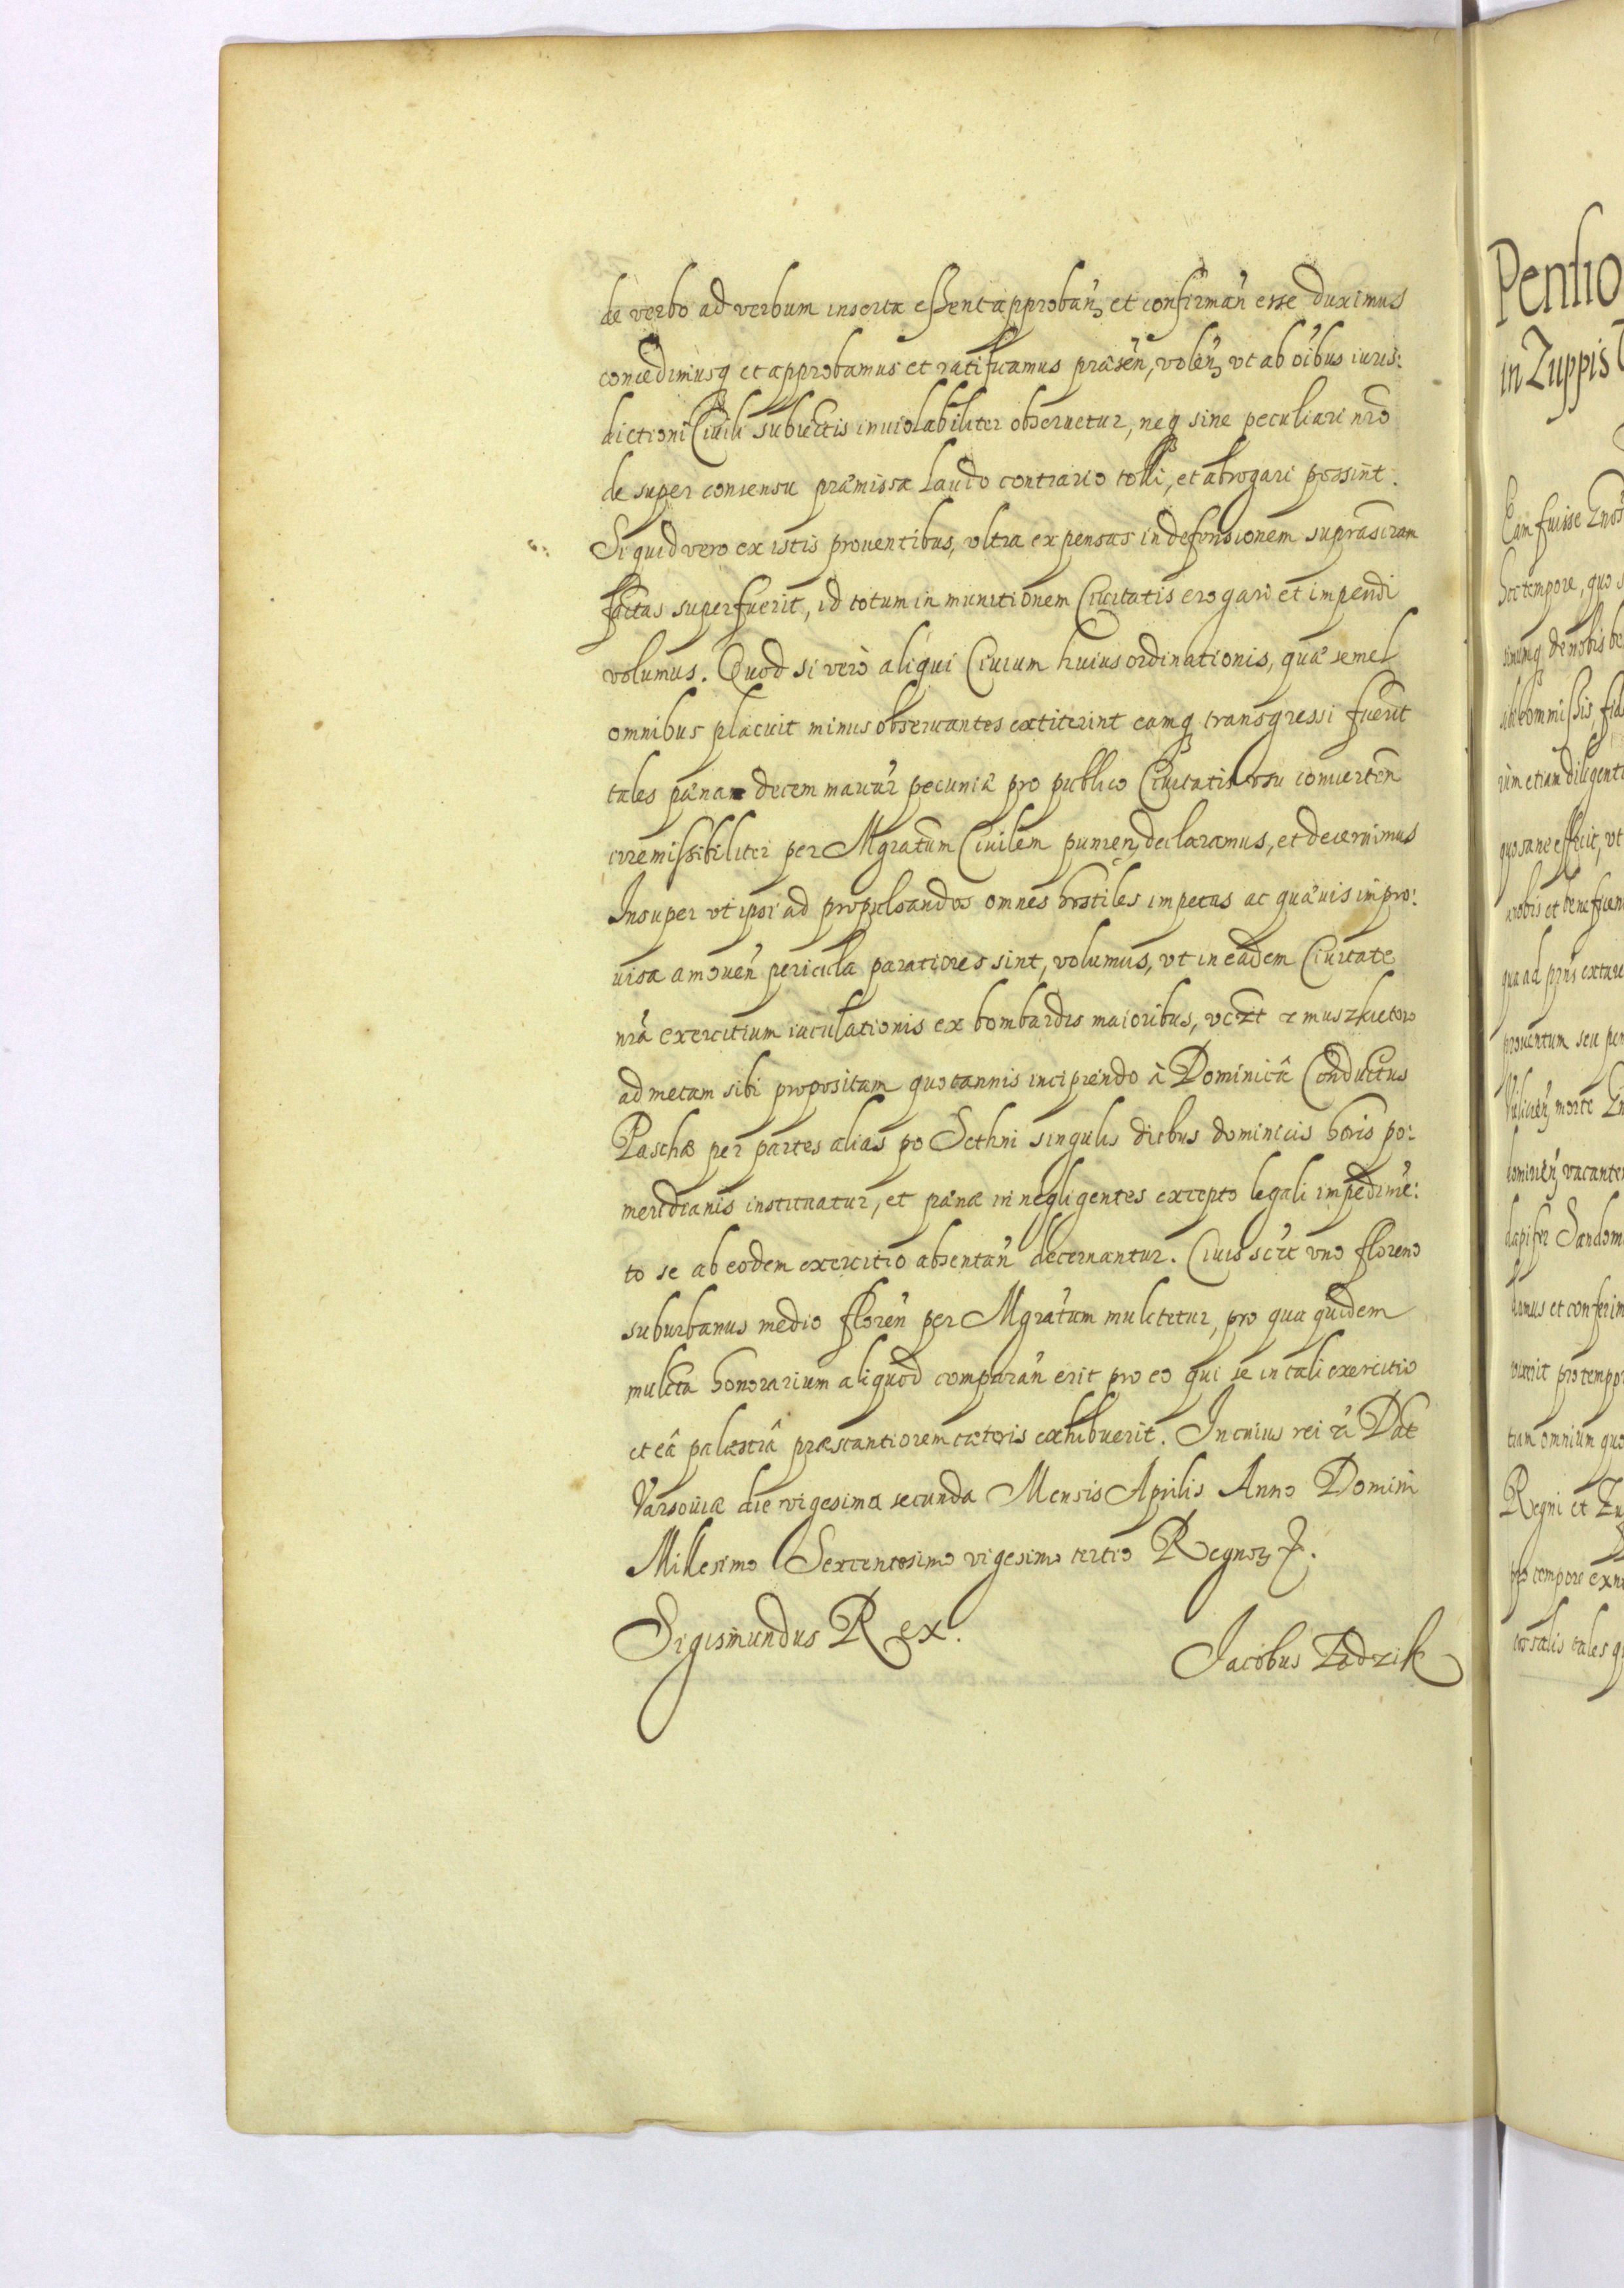 de verbo ad verbum inserta essent approbañ et confirmañ esse duximus
concedimusq et approbamus et ratificamus præseñ, voleñ vt ab oibus iuris:
dictioni Ciuili subiectis inuiolabiliter obseruetur, neq sine peculiari nro
de super consensu præmissa Laudo contrario tolli, et abrogari possint.
Si quid vero ex istis prouentibus, vltra expensas in defensionem suprascram
factas superfuerit, id totum in munitionem Ciuitatis erogari et impendi
volumus. Quod si verò aliqui Ciuium huius ordinationis, quæ semel
omnibus placuit minus obseruantes extiterint eamq transgressi fuerit
tales pæna decem marcar pecuniæ pro publico Ciuitatis vsu conuerteñ
irremissibiliter per Mgratum Ciuilem punieñ declaramus, et decernimus
Insuper vt ipsi ad propulsandos omnes hostiles impetus ac quæuis impro:
uisa amoueñ pericula paratiores sint, volumus, vt in eadem Ciuitate
nrã exercitium iaculationis ex bombardis maioribus, vczt z muszkietow
ad metam sibi propositam quotannis incipiendo à Dominicâ Conductus
Paschæ per partes alias po Sethni singulis diebus dominicis horis po:
meridianis instituatur, et pænæ in negligentes excepto legali impedimē:
to se ab eodem exercitio absentañ decernantur. Ciuis scłt vno floreno
suburbanus medio floreñ per Mgratum mulctetur, pro qua quidem
mulcta honorarium aliquod comparañ erit pro eo qui se in tali exercitio
et eâ palæstrâ præstantiorem cæteris exhibuerit. In cuius rei &c Dat
Varsouiæ die vigesima secunda Mensis Aprilis Anno Domini
Millesimo Sexcentesimo vigesimo tertio Regnor &.
Sigismundus Rex.
Jacobus Zadzik
Pensio
in Zuppis
Eam fuisse
hoc tempore, quo
de nobis
rum etiam diligent
quo sane effecit, vt
nobis et
prouentum seu
morte
vacante
dapifer Sandom
et conferim
pro tempor
tiam omnium quo
Regni et
pro tempore
tales